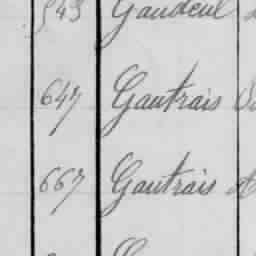 543 Gaudeul
647 Gautrais
667 Gautrais